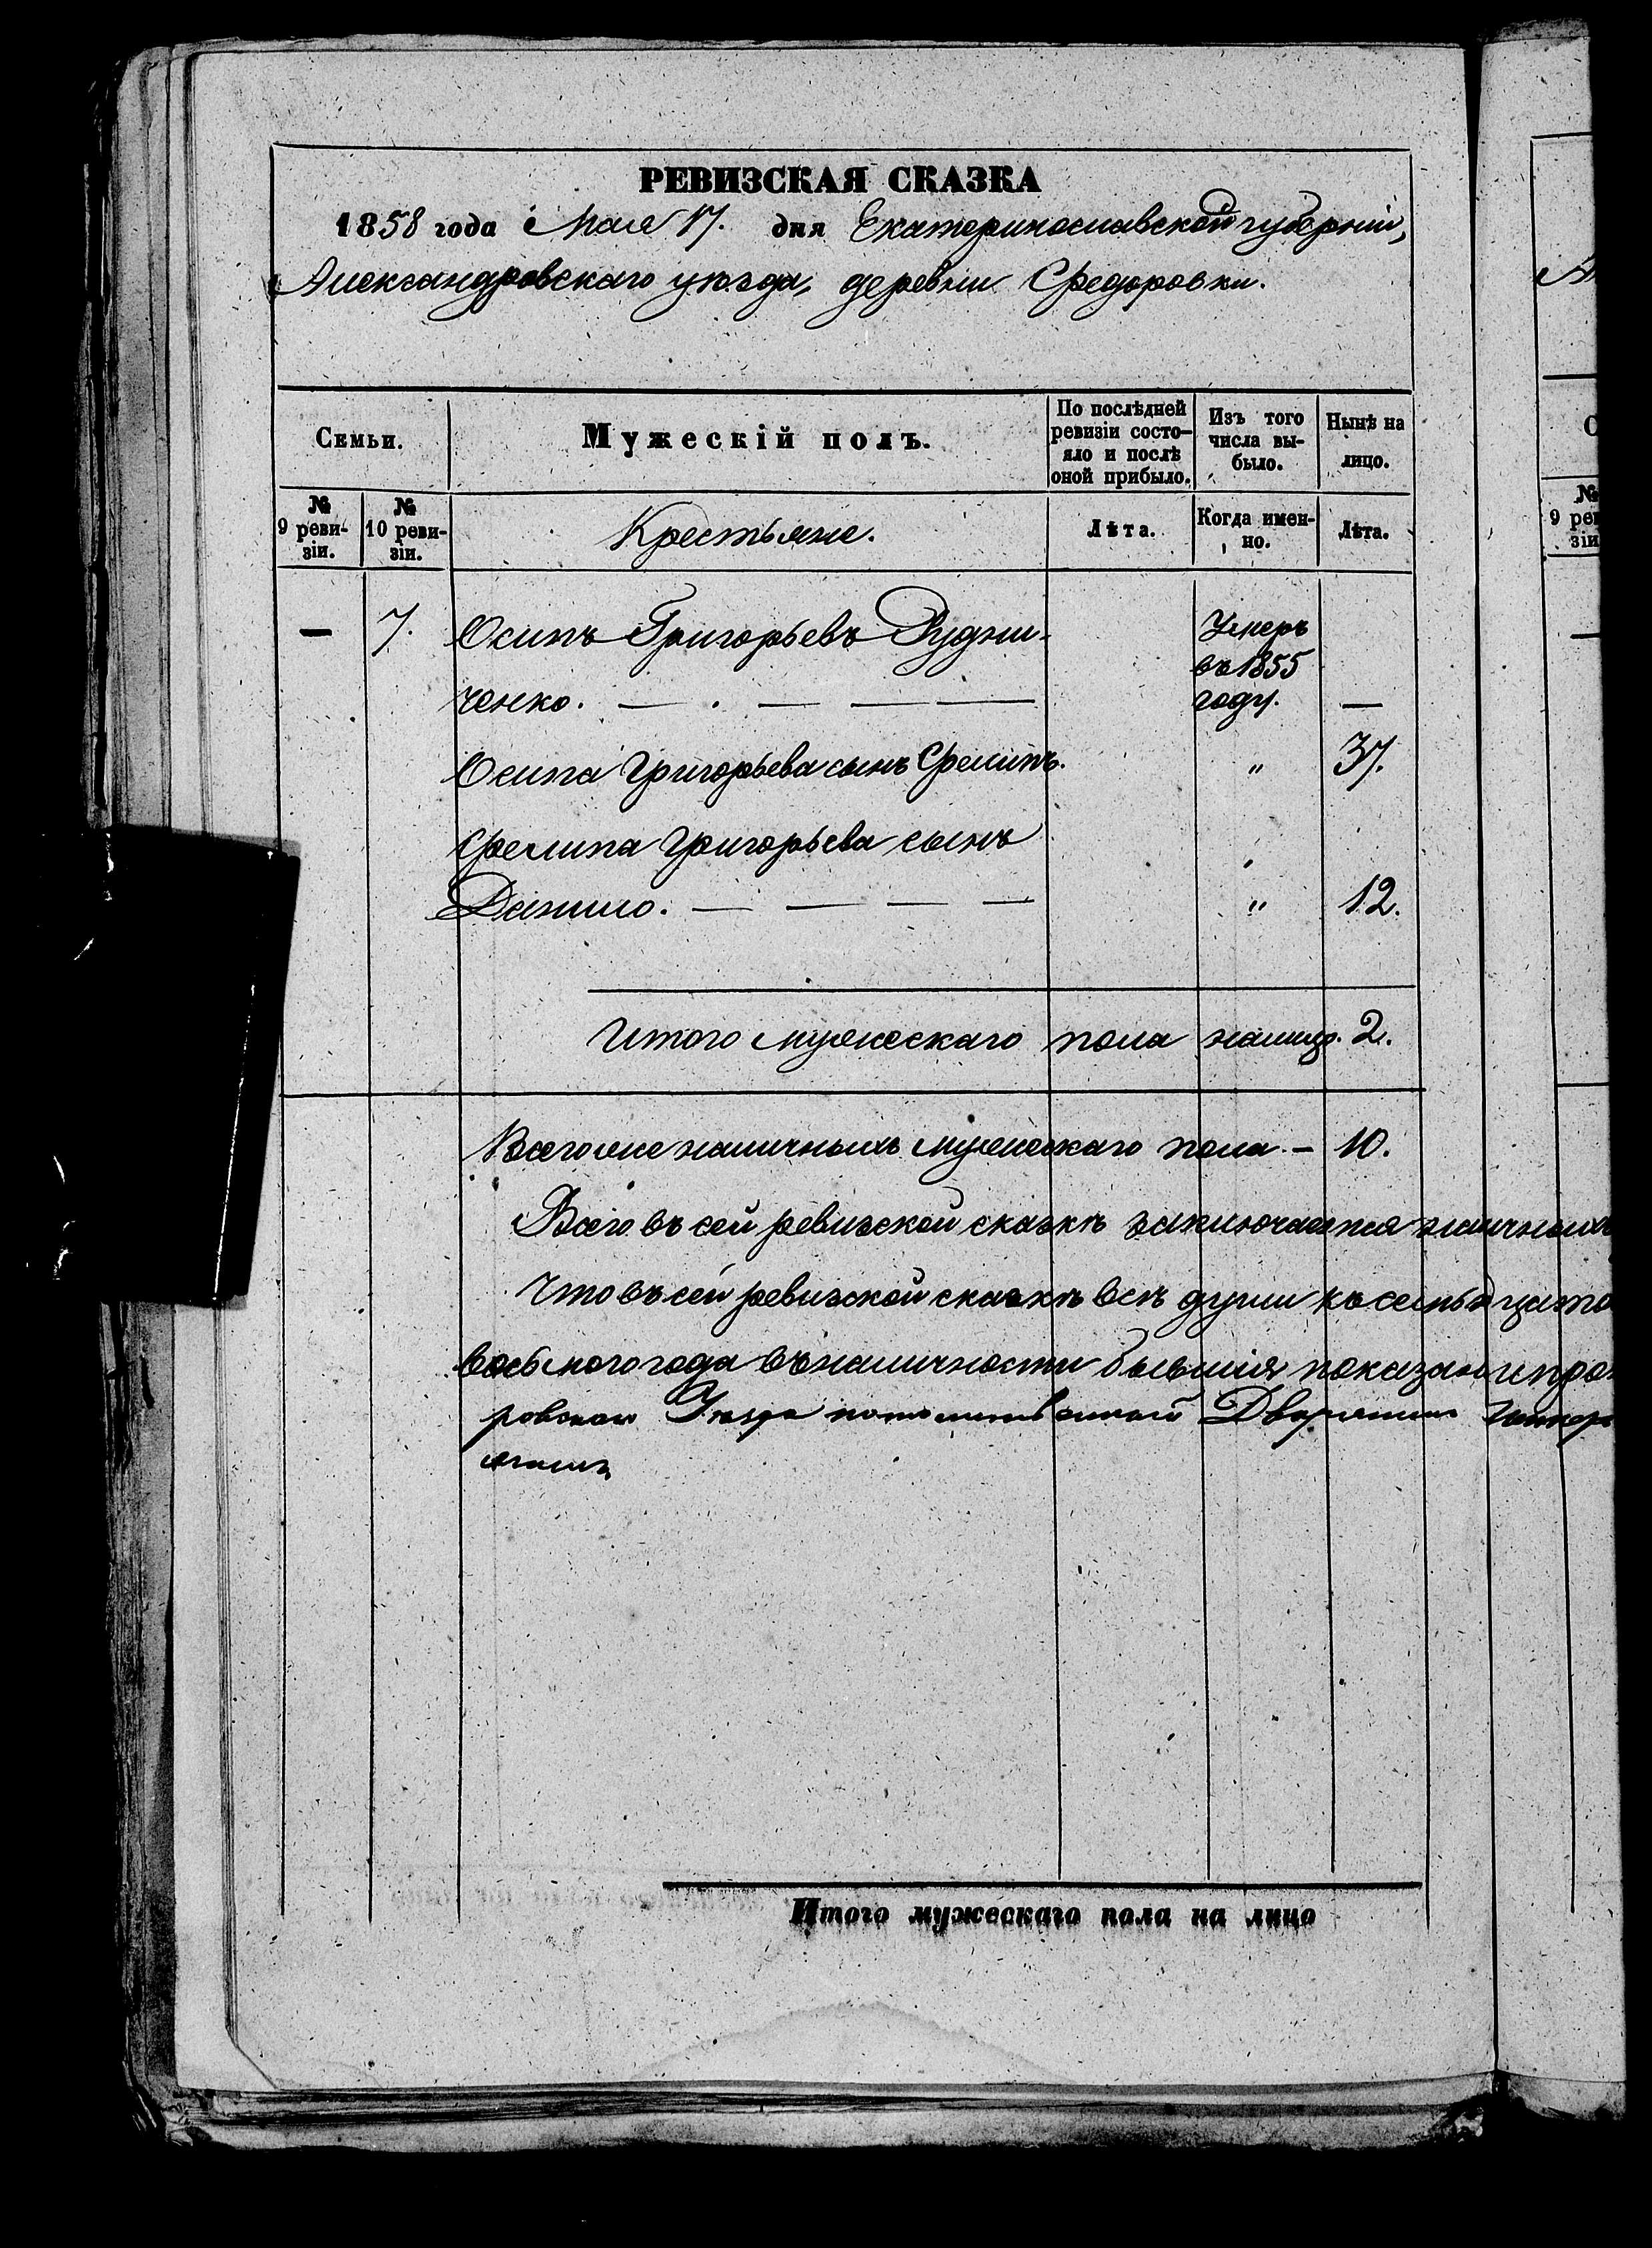 РЕВИЗСКАЯ СКАЗКА
1858 года Мая 17. дня Екатеринославской губерніи,
Александровскаго уѣзда, деревни Федоровки.
Семьи.
Мужескій полъ.
По послѣдней ревизіи состояло и послѣ оной прибыло.
Изъ того числа выбыло.
Нынѣ на лицо.
№ 9 ревизіи.
№ 10 ревизіи.
Крестьяне.
Лѣта.
Когда именно.
Лѣта.
— 7. Осипъ Григорьевъ Рудни- Умеръ
въ 1855
ченко. — . — — — году. —
Осипа Григорьева сынъ Филипъ. " 37.
Филипа Григорьева сынъ
Данило. — — — — " 12.
Итого мужескаго пола налицо. 2.
Всего же наличныхъ мужескаго пола — 10.
Всего въ сей ревизской сказкѣ заключается наличныхъ
Что въ сей ревизской сказкѣ всѣ души къ
восьмого года въ наличности бывшія показаны и
ровскаго Уѣзда Дворянинъ
Итого мужескаго пола на лицо
№
9